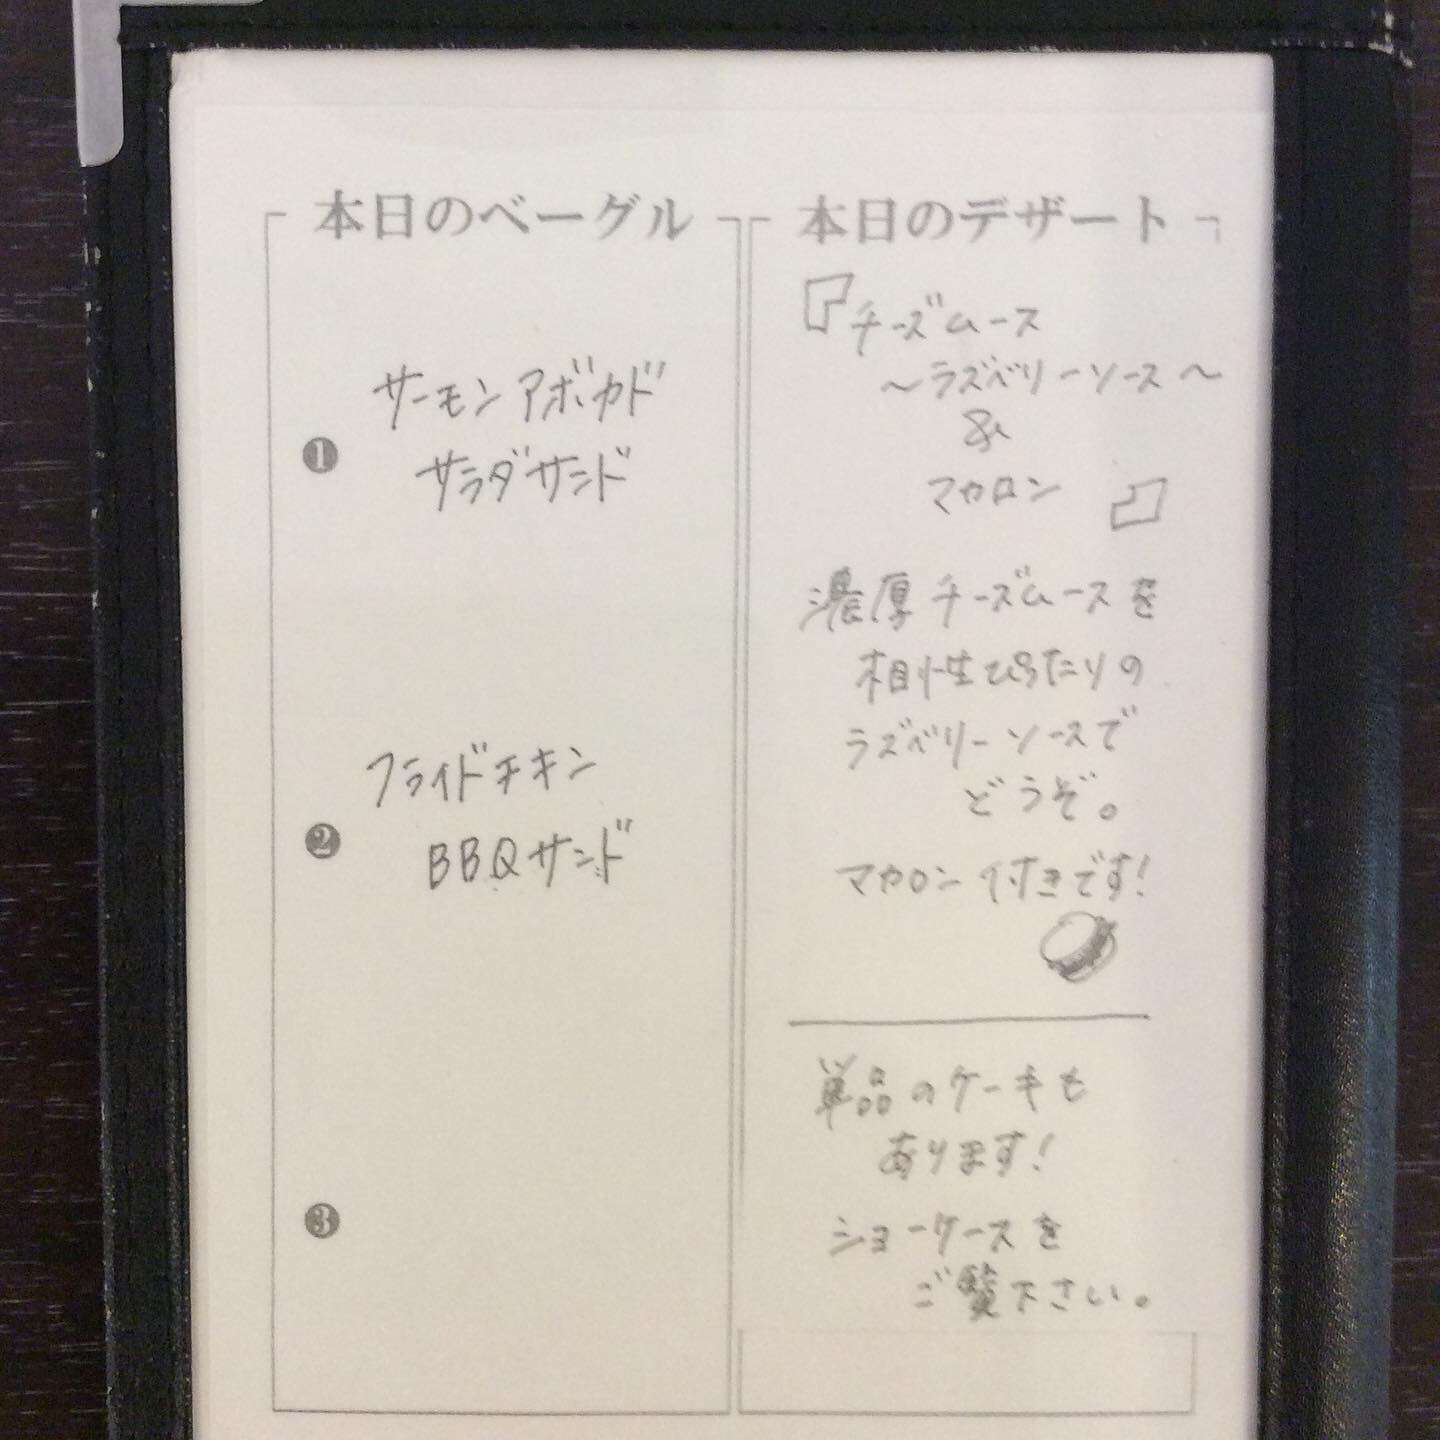 本日のベーグル
❶
サーモンアボカド
サラダサンド
❷
フライドチキン
BBQサンド
❸
本日のデザート
『チーズムース
～ラズベリーソース～
&
マカロン』
濃厚チーズムースを
相性ぴったりの
ラズベリーソースで
どうぞ。
マカロン付きです!
単品のケーキも
あります!
ショーケースを
ご覧下さい。